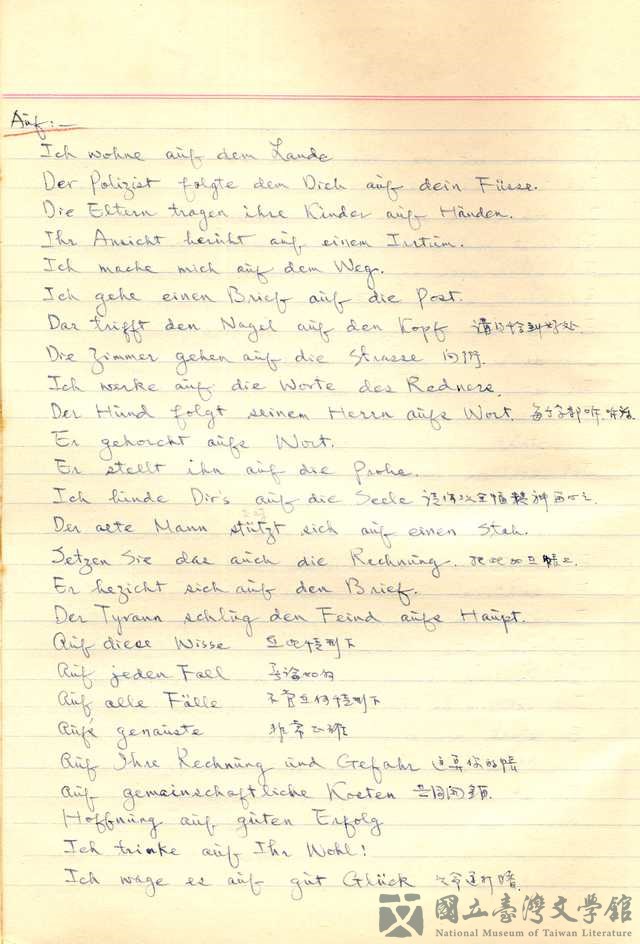 Auf :—
Ich wohne auf dem Lande
Der Polizist folgte dem Dieb auf dein Füsse.
Die Eltern tragen ihre Kinder auf Händen.
Ihr Ansicht beruht auf einem Irrtum.
Ich mache mich auf dem Weg.
Ich gehe einen Brief auf die Post.
Das trifft den Nagel auf den Kopf 講的恰到好处.
Die Zimmer gehen auf die Strasse 向街.
Ich merke auf die Worte des Redners.
Der Hund folgt seinem Herrn aufs Wort. 每个字都听
Er gehorcht aufs Wort.
Er stellt ihn auf die Probe.
Ich binde Dir's auf die Seele
Der alte Mann stützt sich auf einen Stab.
Setzen Sie das auch die Rechnung.
Er bezieht sich auf den Brief.
Der Tyrann schlug den Feind aufs Haupt.
Auf diese Wisse 在此情形下
Auf jeden Fall 無論如何
Auf alle Fälle 不管在何情形下
Aufs genauste 非常正確
Auf Ihre Rechnung und Gefahr 這算你的賬
Auf gemainschaftliche Kosten
Hoffnung auf guten Erfolg
Ich trinke auf Ihr Wohl!
Ich wage es auf gut Glück
國立臺灣文學館
National Museum of Taiwan Literature